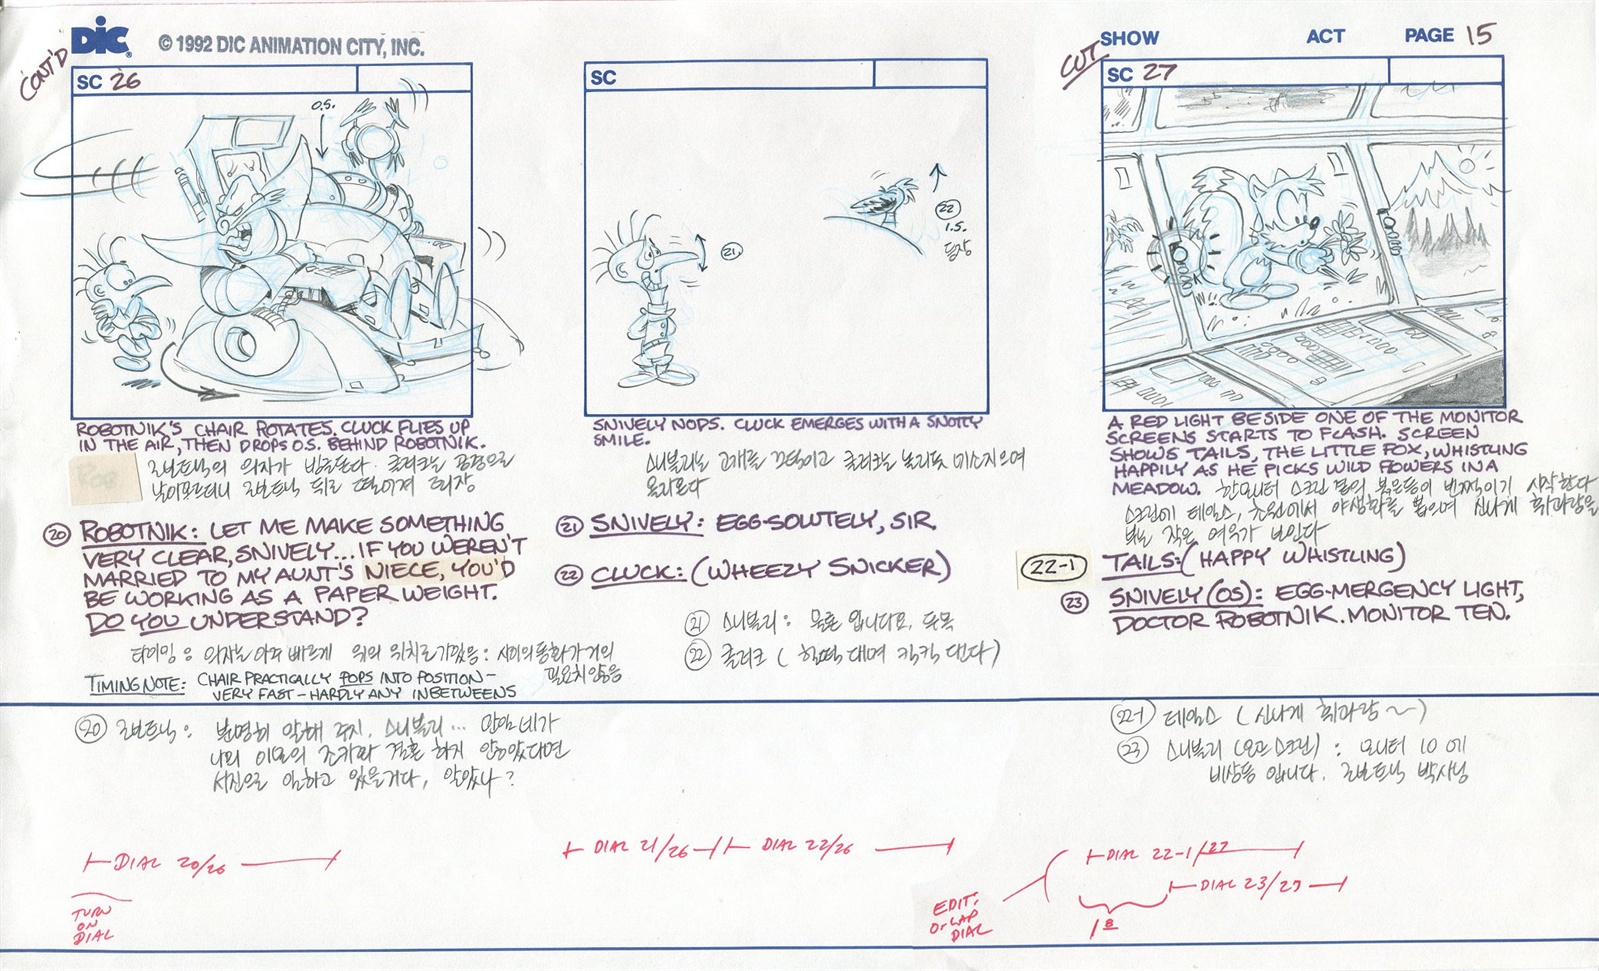 DiC
© 1992 DIC ANIMATION CITY, INC.
SHOW ACT PAGE 15
CONT'D
SC 26
SC
CUT
SC 27
O.S.
21
22
1.5.
등장
ROBOTNIK'S CHAIR ROTATES. CLUCK FLIES UP
IN THE AIR, THEN DROPS O.S. BEHIND ROBOTNIK.
로보트닉의 의자가
20 ROBOTNIK: LET ME MAKE SOMETHING
VERY CLEAR, SNIVELY... IF YOU WEREN'T
MARRIED TO MY AUNT'S NIECE, YOU'D
BE WORKING AS A PAPER WEIGHT.
DO YOU UNDERSTAND?
타이밍: 의자는 아주 빠르게
TIMING NOTE: CHAIR PRACTICALLY POPS INTO POSITION -
VERY FAST - HARDLY ANY INBETWEENS
SNIVELY NODS. CLUCK EMERGES WITH A SNOTTY
SMILE.
스니블리는 고개를 끄덕이고 클러크는
올라온다
21 SNIVELY: EGG-SOLUTELY, SIR.
22 CLUCK: (WHEEZY SNICKER)
21 스니블리: 물론 입니다요.
22 클러크 (헐떡대며 킥킥 댄다)
A RED LIGHT BESIDE ONE OF THE MONITOR
SCREENS STARTS TO FLASH. SCREEN
SHOWS TAILS, THE LITTLE FOX, WHISTLING
HAPPILY AS HE PICKS WILD FLOWERS IN A
MEADOW. 한 모니터 스크린 옆의 붉은등이 번쩍이기 시작한다
스크린에 테일스, 초원에서 야생화를 뽑으며 신나게 휘파람을
부는 작은 여우가 보인다
22-1 TAILS: (HAPPY WHISTLING)
23 SNIVELY (OS): EGG-MERGENCY LIGHT,
DOCTOR ROBOTNIK. MONITOR TEN.
20 로보트닉: 분명히 말해 두지, 스니블리... 만일 네가
나의 이모의 조카와 결혼 하지 않았다면
서진으로 일하고 있을거다, 알았나?
22-1 테일스 (신나게 휘파람~)
23 스니블리 (오프 스크린): 모니터 10에
비상등 입니다. 로보트닉 박사님
DIAL 20/26
TURN
ON
DIAL
DIAL 21/26
DIAL 22/26
EDIT:
O'LAP
DIAL
DIAL 22-1/27
DIAL 23/27
1 8